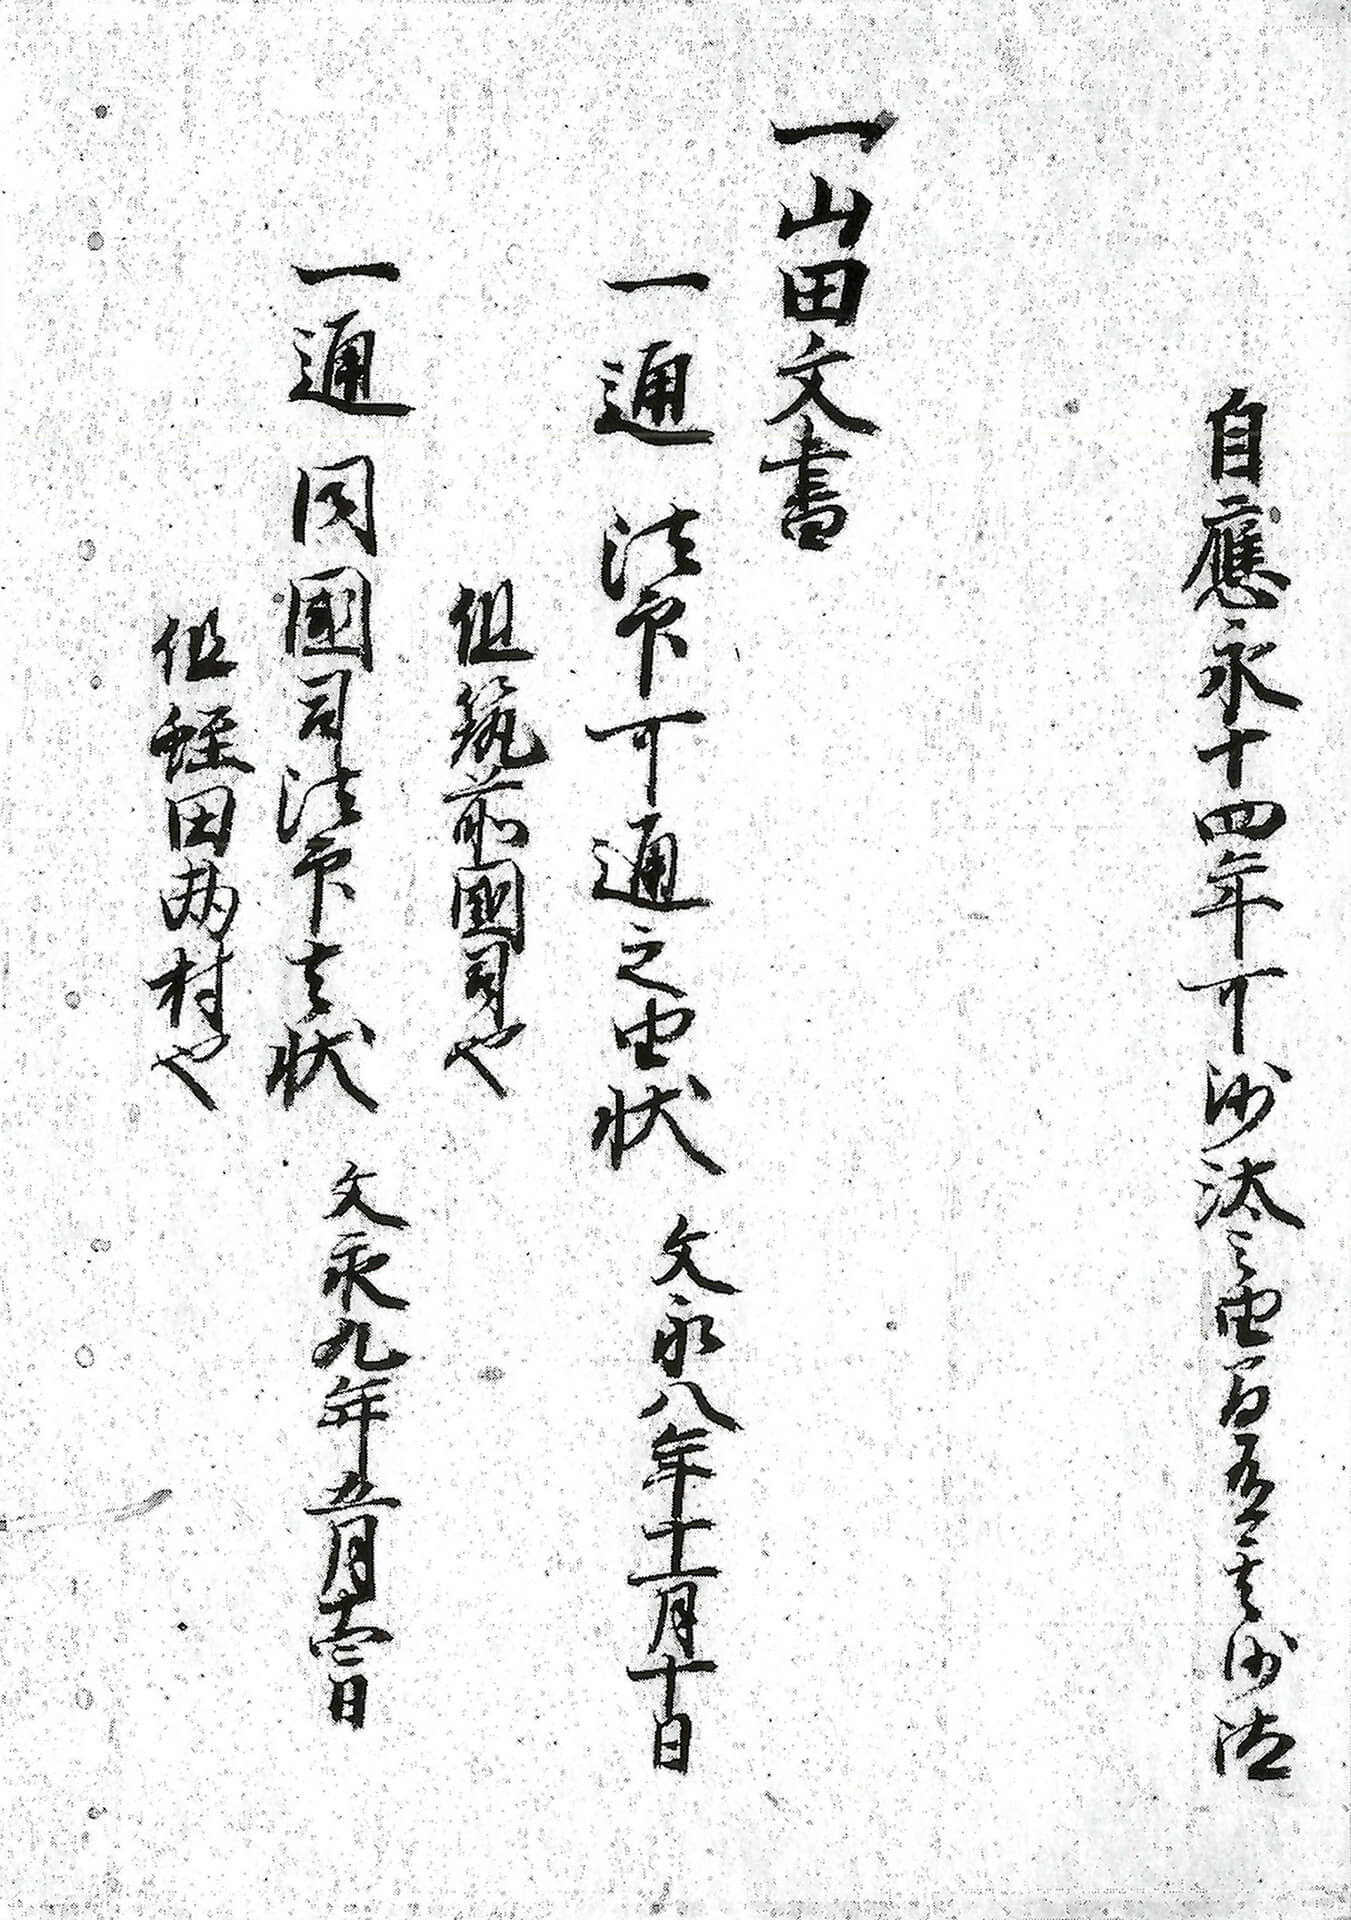 自應永十四年可沙汰之由
一山田文書
一通 法印可通之由状 文永八年十一月十日
但筑前國司也
一通 同國司法印去状 文永九年五月廿三日
但 田両村也